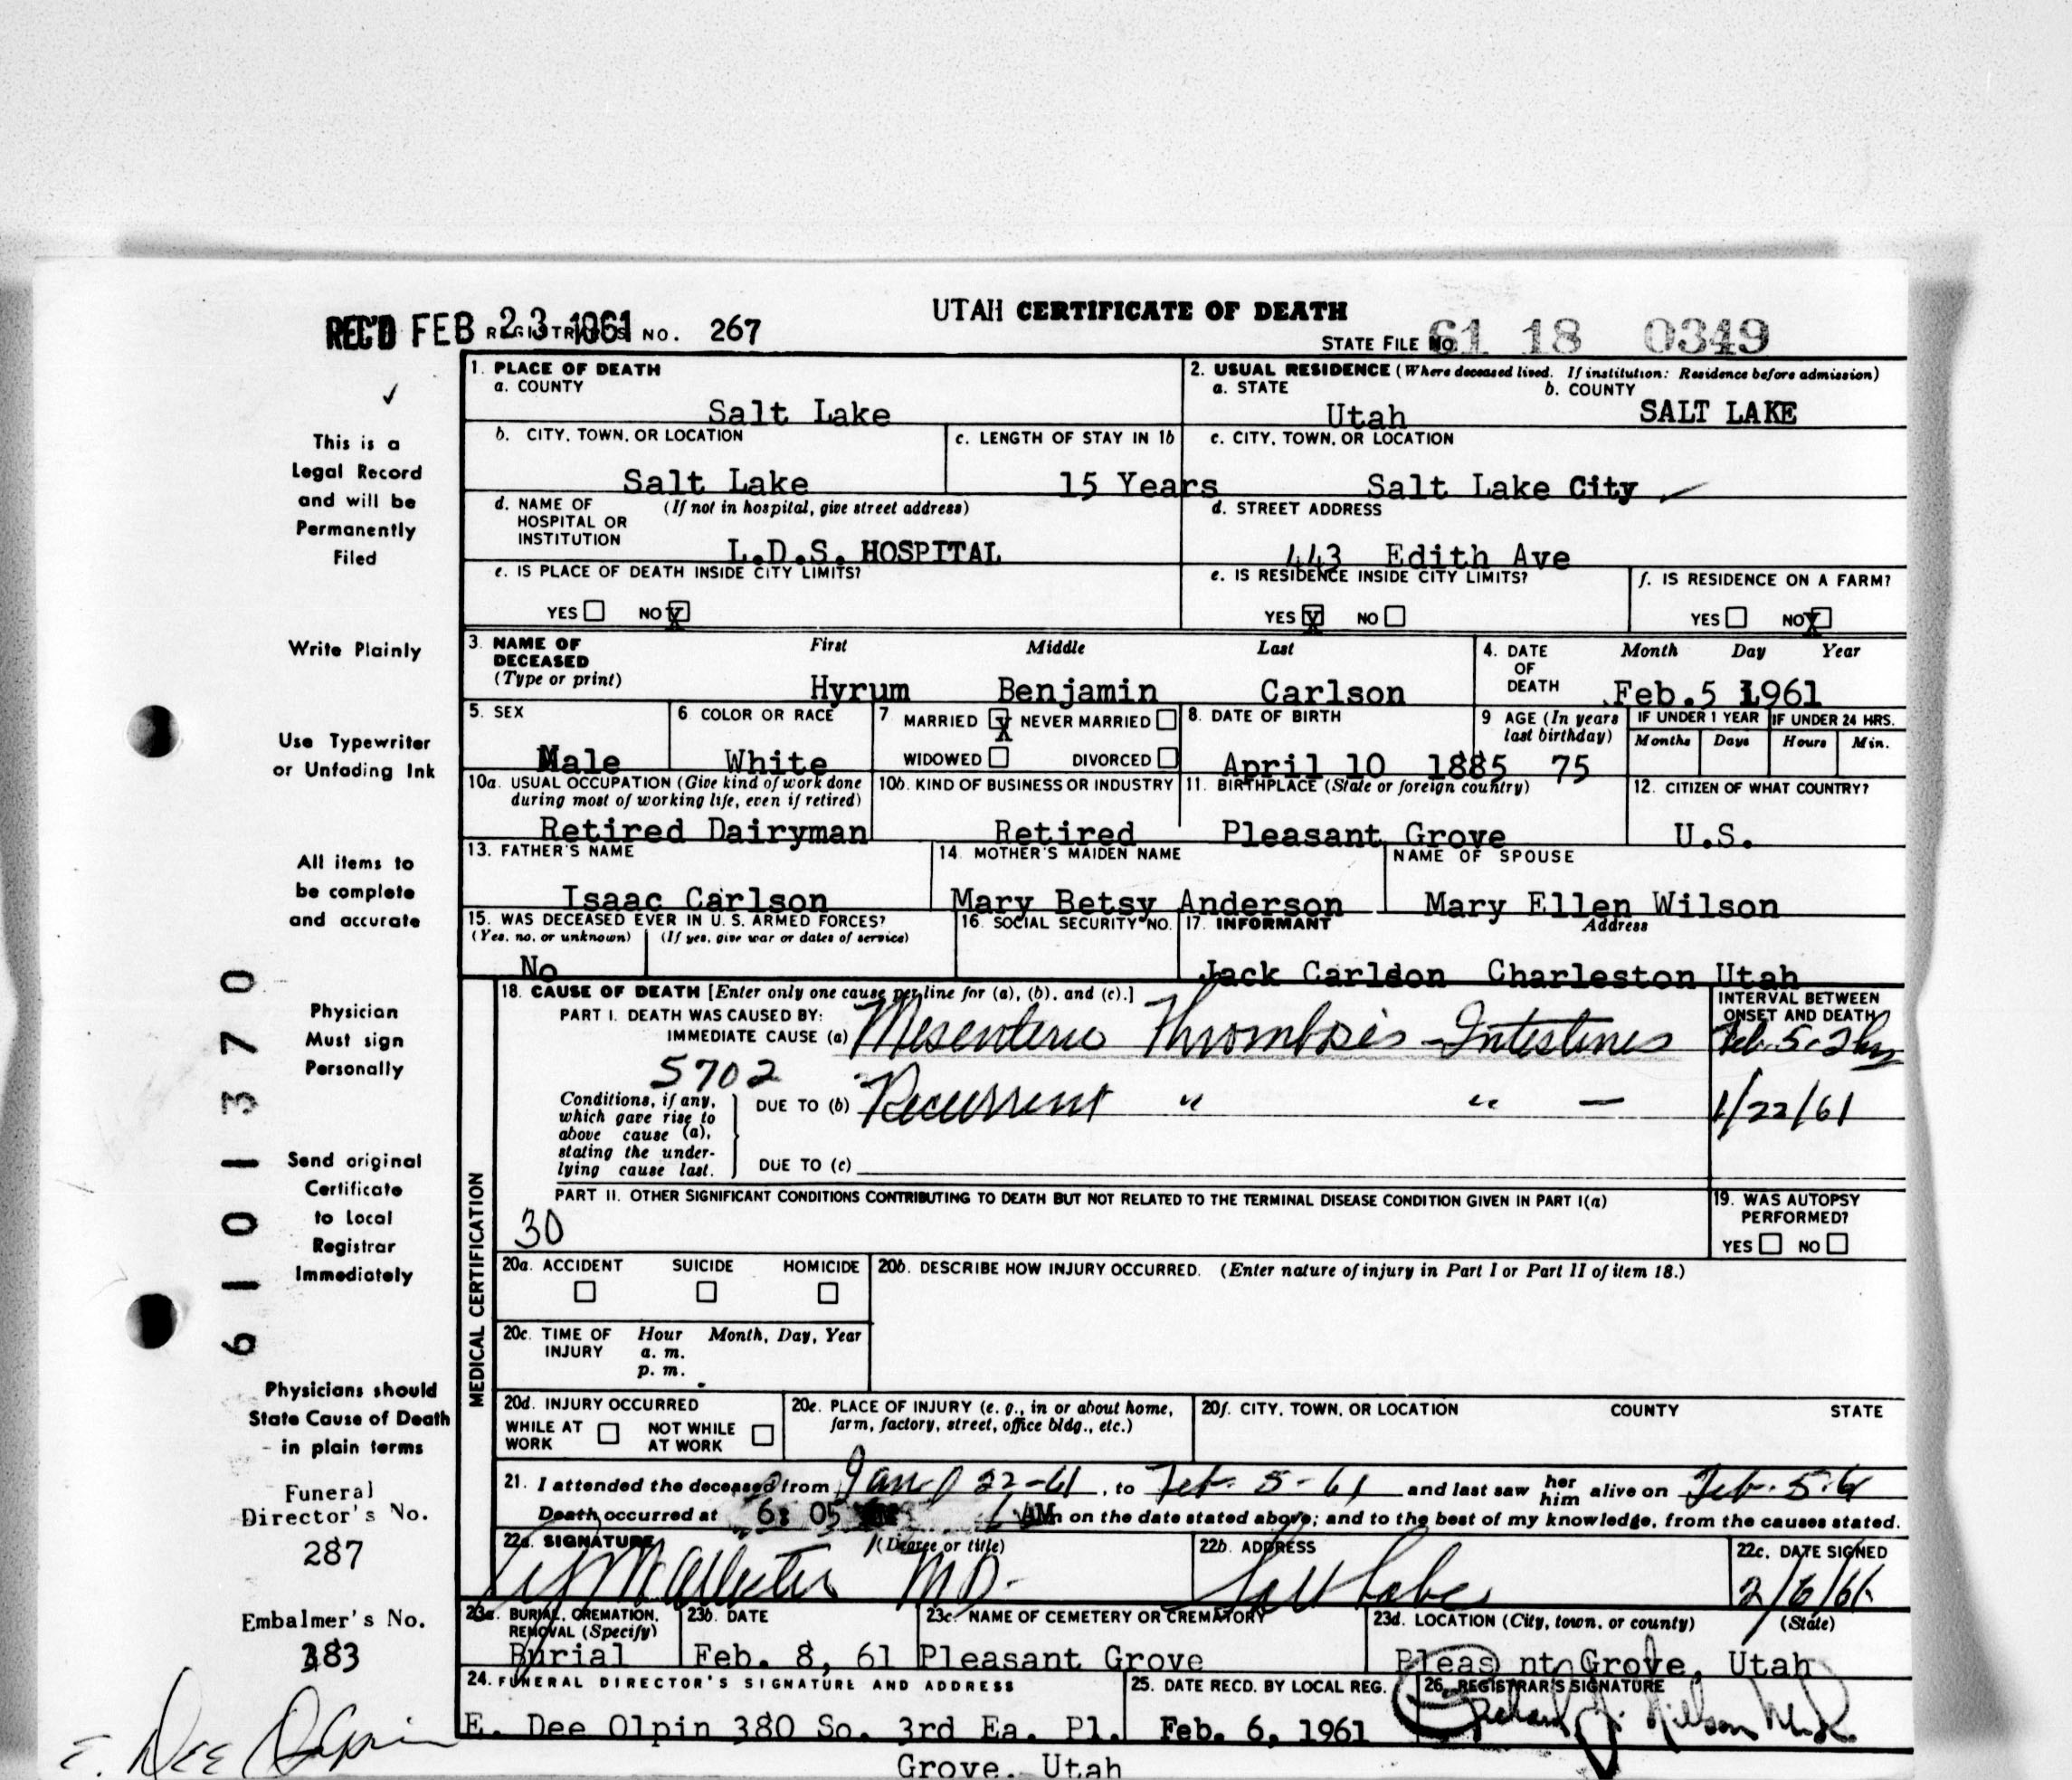 UTAH CERTIFICATE OF DEATH
REC'D FEB 23 1961 REGISTRAR'S NO. 267
STATE FILE NO. 61 18 0349
1. PLACE OF DEATH
a. COUNTY
Salt Lake
2. USUAL RESIDENCE (Where deceased lived. If institution: Residence before admission)
a. STATE b. COUNTY
Utah SALT LAKE
b. CITY, TOWN, OR LOCATION
Salt Lake
c. LENGTH OF STAY IN 1b
15 Years
c. CITY, TOWN, OR LOCATION
Salt Lake City
d. NAME OF HOSPITAL OR INSTITUTION (If not in hospital, give street address)
L.D.S. HOSPITAL
d. STREET ADDRESS
443 Edith Ave
e. IS PLACE OF DEATH INSIDE CITY LIMITS?
YES NO X
e. IS RESIDENCE INSIDE CITY LIMITS?
YES X NO
f. IS RESIDENCE ON A FARM?
YES NO X
3. NAME OF DECEASED (Type or print) First Middle Last
Hyrum Benjamin Carlson
4. DATE OF DEATH Month Day Year
Feb. 5 1961
5. SEX
Male
6. COLOR OR RACE
White
7 MARRIED X NEVER MARRIED
WIDOWED DIVORCED
8. DATE OF BIRTH
April 10 1885
9 AGE (In years last birthday)
75
IF UNDER 1 YEAR IF UNDER 24 HRS.
Months Days Hours Min.
10a. USUAL OCCUPATION (Give kind of work done during most of working life, even if retired)
Retired Dairyman
10b. KIND OF BUSINESS OR INDUSTRY
Retired
11. BIRTHPLACE (State or foreign country)
Pleasant Grove
12. CITIZEN OF WHAT COUNTRY?
U.S.
13. FATHER'S NAME
Isaac Carlson
14. MOTHER'S MAIDEN NAME
Mary Betsy Anderson
NAME OF SPOUSE
Mary Ellen Wilson
15. WAS DECEASED EVER IN U.S. ARMED FORCES?
(Yes, no, or unknown) (If yes, give war or dates of service)
No
16. SOCIAL SECURITY NO.
17. INFORMANT Address
Jack Carldon Charleston Utah
MEDICAL CERTIFICATION
18. CAUSE OF DEATH [Enter only one cause per line for (a), (b), and (c).]
PART I. DEATH WAS CAUSED BY:
IMMEDIATE CAUSE (a) Mesenteric Thrombosis - Intestines
INTERVAL BETWEEN ONSET AND DEATH
Feb. 5 - 2 hrs
5702
Conditions, if any, which gave rise to above cause (a), stating the underlying cause last.
DUE TO (b) Recurrent " " —
1/22/61
DUE TO (c)
PART II. OTHER SIGNIFICANT CONDITIONS CONTRIBUTING TO DEATH BUT NOT RELATED TO THE TERMINAL DISEASE CONDITION GIVEN IN PART I(a)
30
19. WAS AUTOPSY PERFORMED?
YES NO
20a. ACCIDENT SUICIDE HOMICIDE
20b. DESCRIBE HOW INJURY OCCURRED. (Enter nature of injury in Part I or Part II of item 18.)
20c. TIME OF INJURY Hour Month, Day, Year
a. m.
p. m.
20d. INJURY OCCURRED
WHILE AT WORK NOT WHILE AT WORK
20e. PLACE OF INJURY (e. g., in or about home, farm, factory, street, office bldg., etc.)
20f. CITY, TOWN, OR LOCATION COUNTY STATE
21. I attended the deceased from Jan 22-61, to Feb. 5-61 and last saw her him alive on Feb. 5-61
Death occurred at 6: 05 AM m on the date stated above; and to the best of my knowledge, from the causes stated.
22a. SIGNATURE (Degree or title)
McAllister M.D.
22b. ADDRESS
Salt Lake
22c. DATE SIGNED
2/6/61
23a. BURIAL, CREMATION, REMOVAL (Specify)
Burial
23b. DATE
Feb. 8, 61
23c. NAME OF CEMETERY OR CREMATORY
Pleasant Grove
23d. LOCATION (City, town, or county) (State)
Pleas nt Grove, Utah
24. FUNERAL DIRECTOR'S SIGNATURE AND ADDRESS
E. Dee Olpin 380 So. 3rd Ea. Pl.
Grove, Utah
25. DATE RECD. BY LOCAL REG.
Feb. 6, 1961
26. REGISTRAR'S SIGNATURE
Nilson
This is a
Legal Record
and will be
Permanently
Filed
Write Plainly
Use Typewriter
or Unfading Ink
All items to
be complete
and accurate
Physician
Must sign
Personally
Send original
Certificate
to Local
Registrar
Immediately
Physicians should
State Cause of Death
in plain terms
Funeral
Director's No.
287
Embalmer's No.
383
E. Dee Olpin
6101370